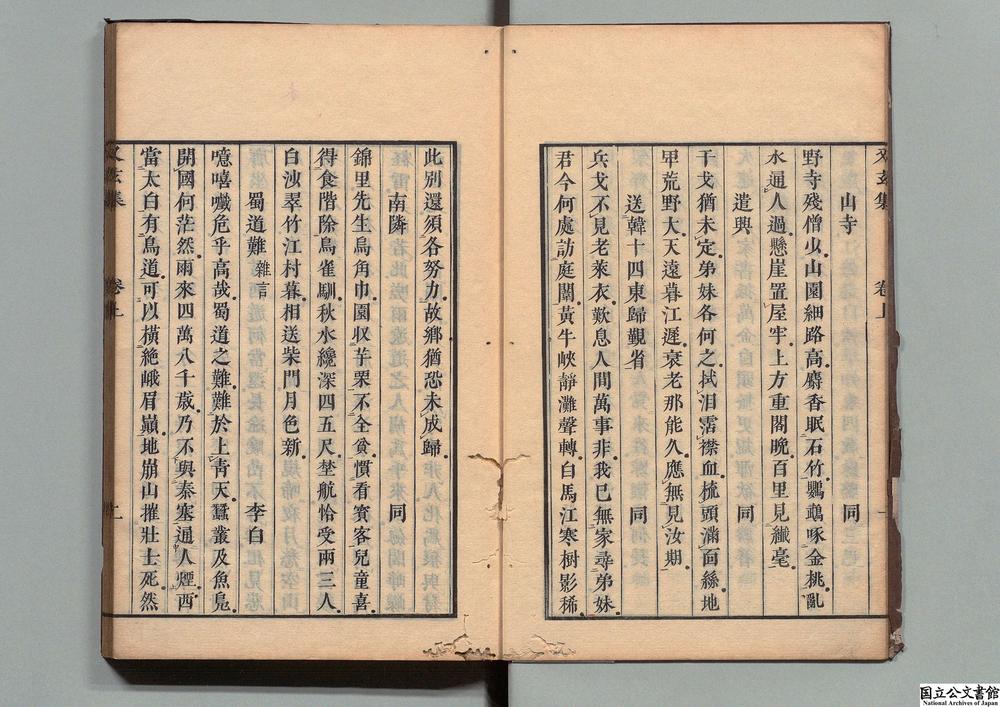 山寺 同
野寺殘僧少山園細路高麝香眠石竹鸚鵡啄金桃亂
水通人過懸崖置屋牢上方重閣晚百里見纖毫
遣興 同
干戈猶未定弟妹各何之拭淚霑襟血梳頭滿面絲地
卑荒野大天遠暮江遲衰老那能久應無見汝期
送韓十四東歸覲省 同
兵戈不見老萊衣歎息人間萬事非我已無家尋弟妹
君今何處訪庭闈黃牛峽靜灘聲轉白馬江寒樹影稀
此別還須各努力故鄉猶恐未成歸
南隣 同
錦里先生烏角巾園収芋栗不全貧慣看賓客兒童喜
得食階除鳥雀馴秋水纔深四五尺埜航恰受兩三人
白沙翠竹江村暮相送柴門月色新
蜀道難 雜言 李白
噫嘻嚱危乎高哉蜀道之難難於上青天蠶叢及魚鳧
開國何茫然爾來四萬八千歲乃不與秦塞通人煙西
當太白有鳥道可以橫絶峨眉巔地崩山摧壯士死然
又玄集 卷上
国立公文書館
National Archives of Japan